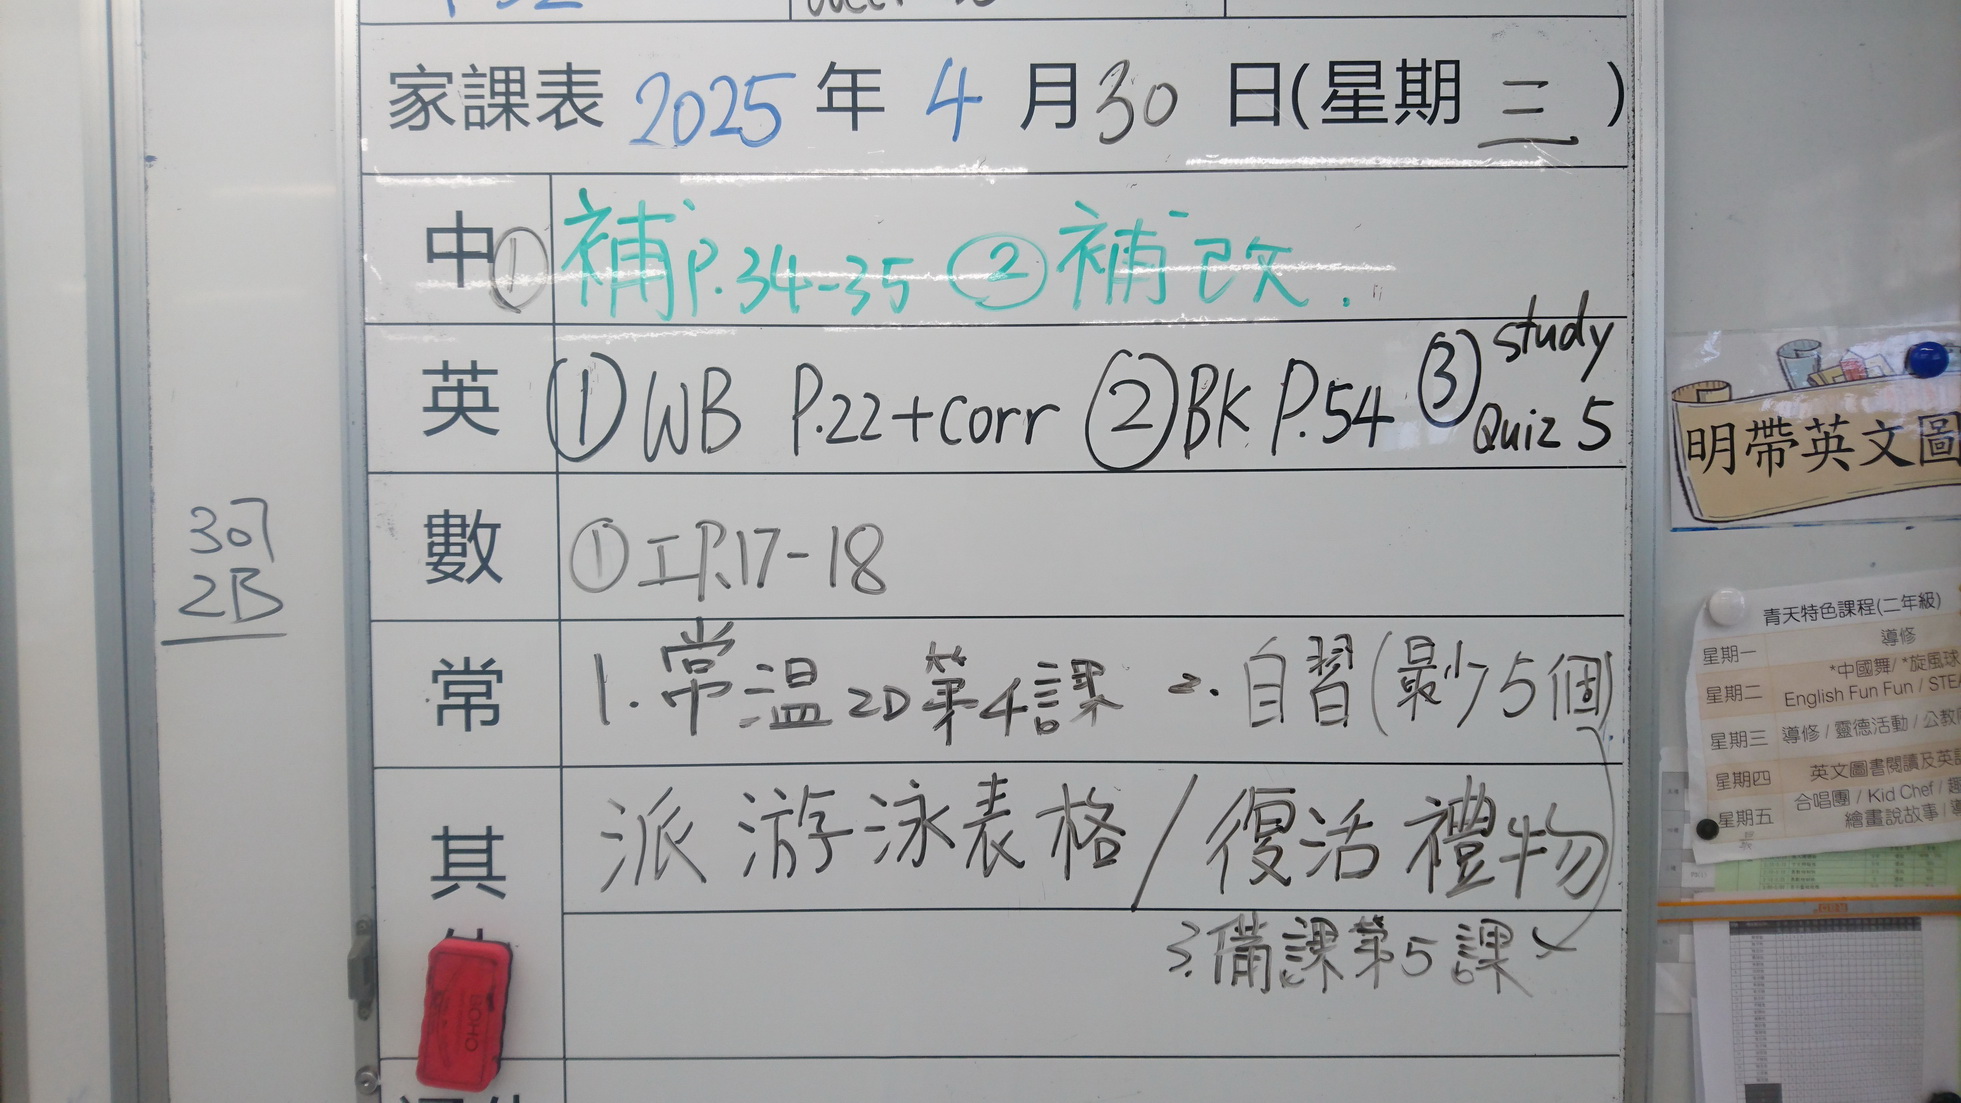 家課表 2025 年 4 月 30 日(星期 三 )
中 ① 補 P.34-35 ② 補改.
英 ① WB P.22+corr ② BK P.54 ③ study Quiz 5
數 ① 工P.17-18
常 1. 常温2D第4課 2. 自習(最少5個)
3. 備課第5課
其 派游泳表格/復活禮物
2B
明帶英文圖
青天特色課程(二年級)
星期一 導修
星期二 *中國舞/ *旋風球
English Fun Fun / STE
星期三 導修 / 靈德活動 / 公教
星期四 英文圖書閱讀及英
星期五 合唱團 / Kid Chef /
繪畫說故事 /
ECHO